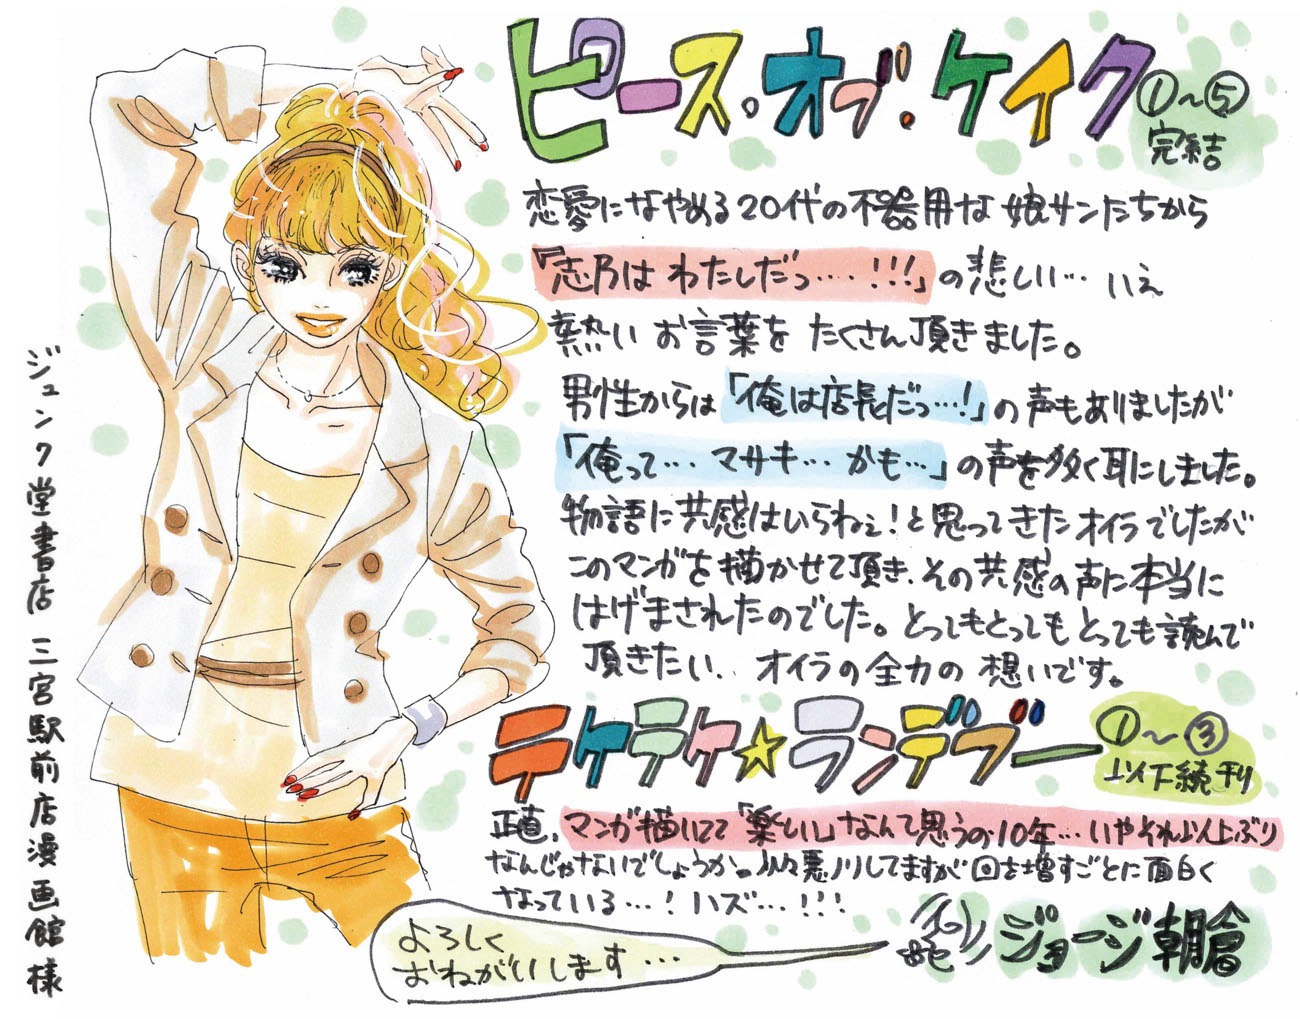 ピース・オブ・ケイク ①〜⑤
完結
恋愛になやめる20代の不器用な娘サンたちから
「志乃は わたしだっ‥‥!!!」の悲しい… いえ
熱い お言葉を たくさん頂きました。
男性からは「俺は店長だっ…!」の声もありましたが
「俺って… マサキ… かも…」の声を多く耳にしました。
物語に共感はいらねぇ!と思ってきたオイラでしたが
このマンガを描かせて頂き、その共感の声に本当に
はげまされたのでした。とってもとってもとっても読んで
頂きたい、オイラの全力の 想いです。
テケテケ★ランデブー ①〜③
以下続刊
正直、マンガ描いてて「楽しい」なんて思うの10年…いやそれ以上ぶり
なんじゃないでしょうか。少々悪ノリしてますが回を増すごとに面白く
なっている…!ハズ…!!!
よろしく
おねがいします…
ジョージ朝倉
ジュンク堂書店 三宮駅前店漫画館様